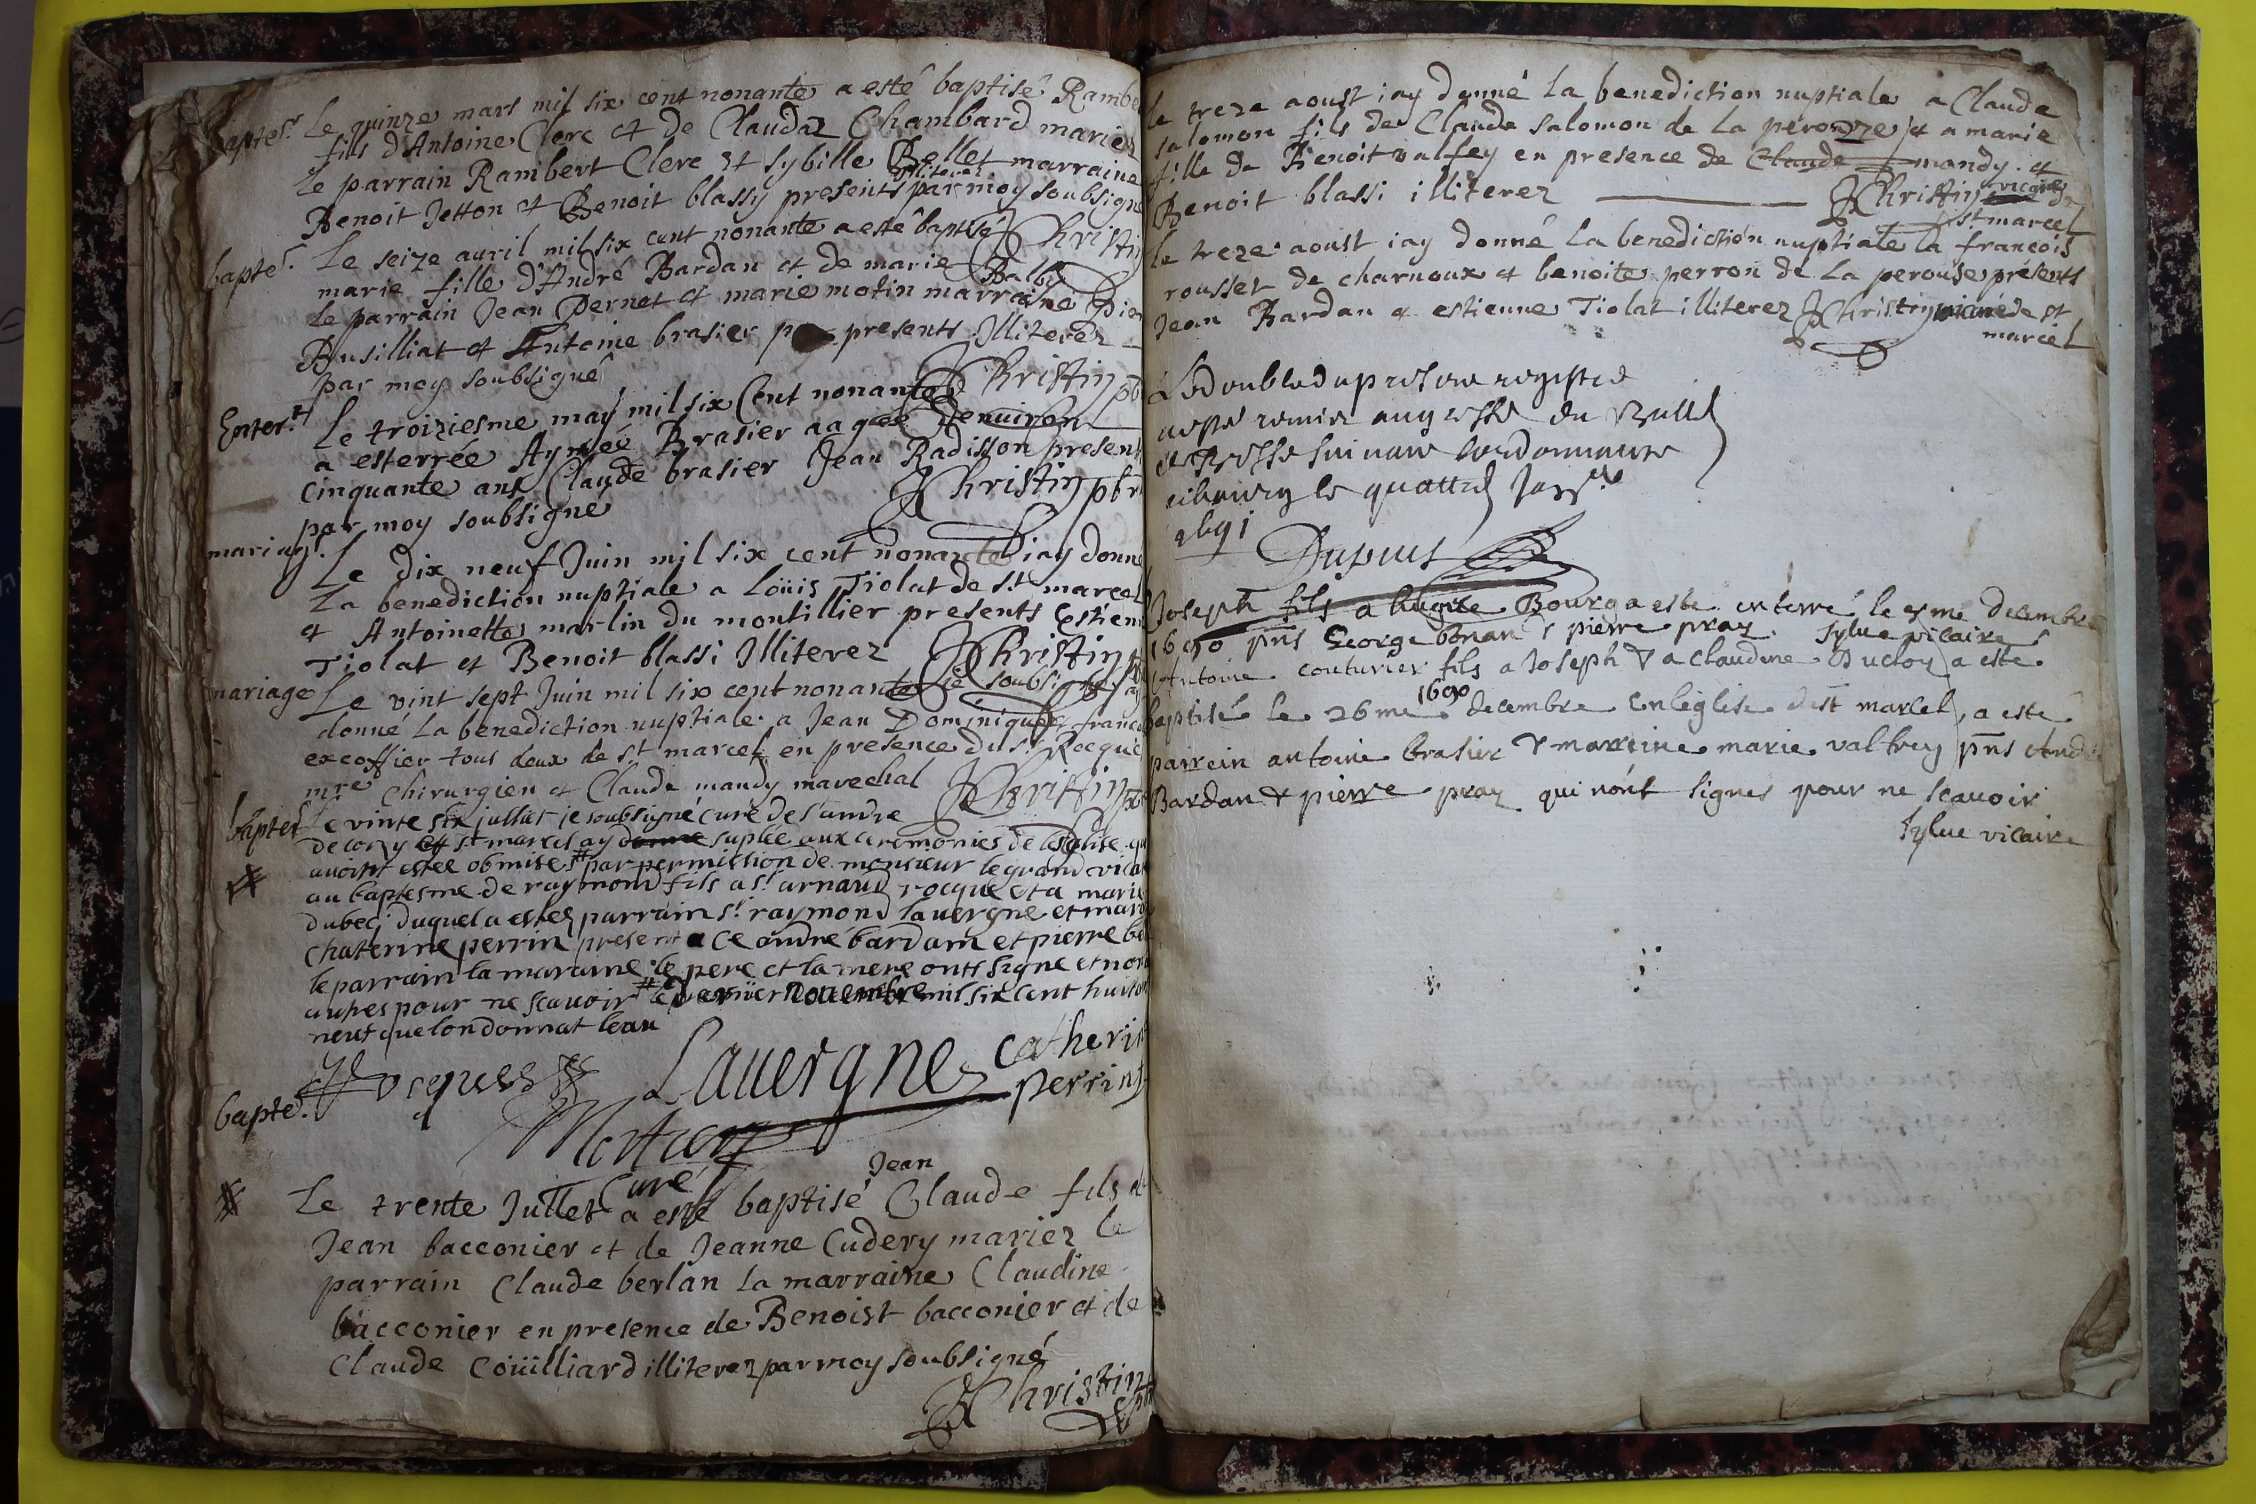 bapte.r Le quinze mars mil six cent nonante a esté baptisé Rambe
fils d'Antoine Clerc et de Claudaz Chambard mariez
le parrain Rambert Clerc et Sybille Bellet marraine
illiterez
Benoit Jetton et Benoit blassy presents par moy soubsigné
Christin
bapte.r Le seize auril mil six cent nonante a esté baptisé
marie fille d'André Bardan et de marie Balby
le parrain Jean Pernet et marie motin marraine Pier
Busilliat et Antoine brasier presents Illiterez
par moy soubsigné Christin pb
Enter.t Le troiziesme may mil six Cent nonante
a esterrée Aymeé Brasier aagee denuiron
cinquante ans Claude brasier Jean Radisson present
par moy soubsigné Christin pbr
mariag. Le dix neuf Juin mil six cent nonante iay donné
La benediction nuptiale a Loüis Tiolat de st marcel
et Antoinette marlin du montillier presents Estien
Tiolat et Benoit blassi Illiterez Christin
mariage Le vint sept Juin mil six cent nonante ie soubsigné ay
donné La benediction nuptiale a Jean Dominique francoi
excoffier tous deux de st marcel en presence du sr Rocque
mre Chirurgien et Claude mandy marechal Christin
baptes Le vinte six julliet je soubsigné curé de s andre
de corzy et st marcel ay donné suplée aux ceremonies de leglise qui
auoint estee obmises # par permission de monsieur le grand vica
au baptesme de raymond fils a sr arnaud rocque et a marie
dubec; duquel a estez parrain sr raymond lauergne et mar
chaterine perrin present a ce andré bardam et pierre be
le parrain la maraine le pere et la mere onts signe et non
autres pour ne scauoir # le dernier nouembre mil six cent huitan
neuf que lon donnat leau
Rocques Lauergne catherin
perrin
bapte.r
Curé
Jean
Le trente Jullet a esté baptisé Claude fils de
Jean bacconier et de Jeanne Cudery mariez le
parrain Claude berlan La marraine Claudine
bacconier en presence de Benoist bacconier et de
Claude Coüilliard illiterez par moy soubsigné
Christin
le treze aoust iay donné la benediction nuptiale a Claude
salomon fils de Claude salomon de la perouze et a marie
fille de Benoit valfey en presence de Claude mandy et
Benoit blassi illiterez Christin vicaire de
st marcel
le treze aoust iay donné la benediction nuptiale a francois
rousset de charnoux et benoite perron de la perouse présents
Jean Bardan et estienne Tiolat illiterez Christin vicaire de st
marcel
Le double du present registre
a esté remis au greffe du Baill
de Bresse suivant lordonnance
le quattre Jan
1691
Dupuis
Joseph fils a hugue Bourg a este enterré le 7me decembre
1690 pns George bonan & pierre pray. Sylue vicaire
Antoine couturier fils a Joseph & a Claudine Ducloy a este
1690
baptisé le 26me decembre en leglise de st marcel, a este
parrein antoine brasier & marreine marie valfrey pns André
Bardan & pierre pray qui n'ont signes pour ne scauoir
Sylue vicaire